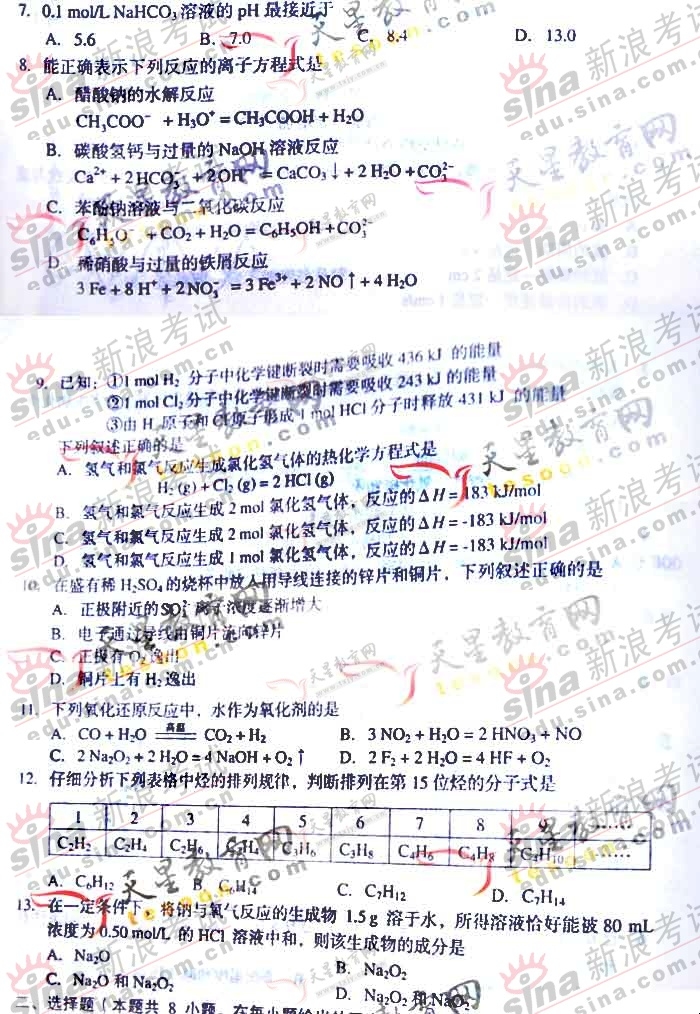 7. 0.1 mol/L NaHCO₃溶液的 pH 最接近于
A. 5.6 B. 7.0 C. 8.4 D. 13.0
8. 能正确表示下列反应的离子方程式是
A. 醋酸钠的水解反应
CH₃COO⁻ + H₃O⁺ = CH₃COOH + H₂O
B. 碳酸氢钙与过量的 NaOH 溶液反应
Ca²⁺ + 2HCO₃⁻ + 2OH⁻ = CaCO₃↓ + 2H₂O + CO₃²⁻
C. 苯酚钠溶液与二氧化碳反应
C₆H₅O⁻ + CO₂ + H₂O = C₆H₅OH + CO₃²⁻
D. 稀硝酸与过量的铁屑反应
3 Fe + 8 H⁺ + 2 NO₃⁻ = 3 Fe³⁺ + 2 NO↑ + 4 H₂O
9. 已知：①1 mol H₂ 分子中化学键断裂时需要吸收 436 kJ 的能量
②1 mol Cl₂ 分子中化学键断裂时需要吸收 243 kJ 的能量
③由 H 原子和 Cl 原子形成 1 mol HCl 分子时释放 431 kJ 的能量
下列叙述正确的是
A. 氢气和氯气反应生成氯化氢气体的热化学方程式是
H₂(g) + Cl₂(g) = 2 HCl(g)
B. 氢气和氯气反应生成 2 mol 氯化氢气体，反应的 ΔH = 183 kJ/mol
C. 氢气和氯气反应生成 2 mol 氯化氢气体，反应的 ΔH = -183 kJ/mol
D. 氢气和氯气反应生成 1 mol 氯化氢气体，反应的 ΔH = -183 kJ/mol
10. 在盛有稀 H₂SO₄ 的烧杯中放入用导线连接的锌片和铜片，下列叙述正确的是
A. 正极附近的 SO₄²⁻ 离子浓度逐渐增大
B. 电子通过导线由铜片流向锌片
C. 正极有 O₂ 逸出
D. 铜片上有 H₂ 逸出
11. 下列氧化还原反应中，水作为氧化剂的是
A. CO + H₂O =高温= CO₂ + H₂ B. 3 NO₂ + H₂O = 2 HNO₃ + NO
C. 2 Na₂O₂ + 2 H₂O = 4 NaOH + O₂↑ D. 2 F₂ + 2 H₂O = 4 HF + O₂
12. 仔细分析下列表格中烃的排列规律，判断排列在第 15 位烃的分子式是
1 2 3 4 5 6 7 8 9 ……
C₂H₂ C₂H₄ C₂H₆ C₃H₄ C₃H₆ C₃H₈ C₄H₆ C₄H₈ C₄H₁₀ ……
A. C₆H₁₂ B. C₆H₁₄ C. C₇H₁₂ D. C₇H₁₄
13. 在一定条件下，将钠与氧气反应的生成物 1.5 g 溶于水，所得溶液恰好能被 80 mL
浓度为 0.50 mol/L 的 HCl 溶液中和，则该生成物的成分是
A. Na₂O B. Na₂O₂
C. Na₂O 和 Na₂O₂ D. Na₂O₂ 和 NaO₂
二、选择题（本题共 8 小题。在每小题给出的
sina 新浪考试
edu.sina.com.cn
天星教育网
tesoon.com